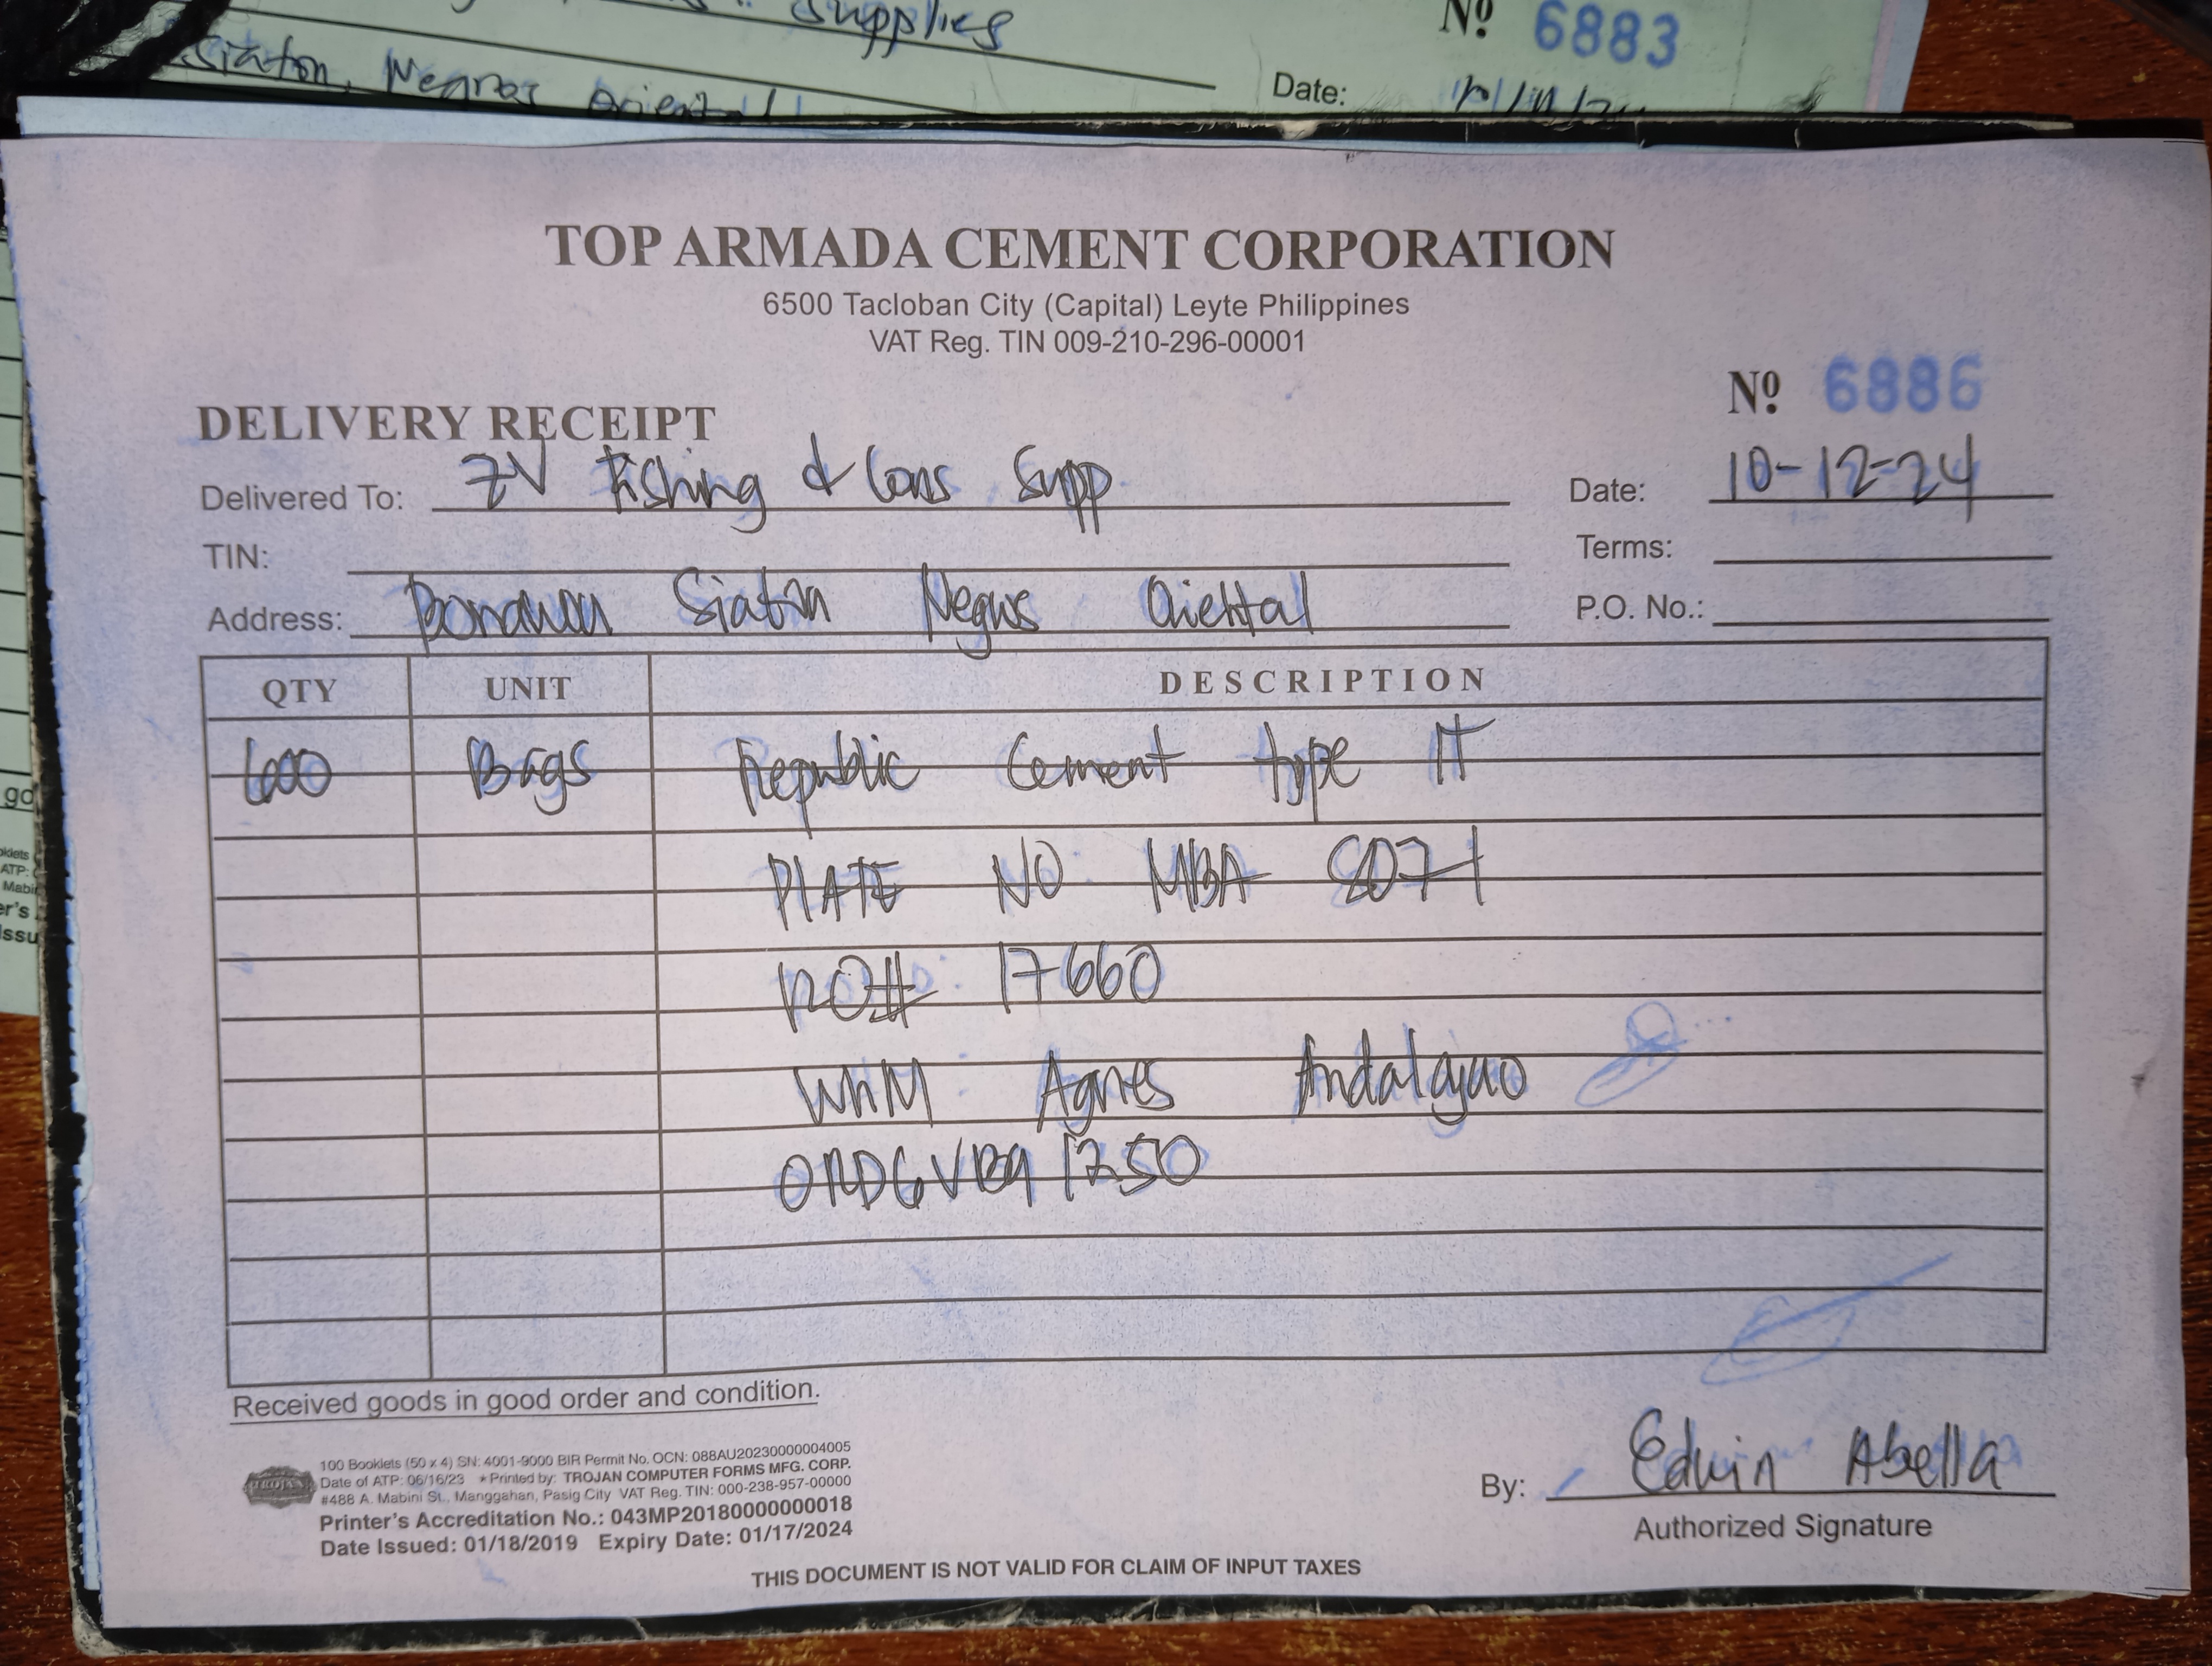 Supplies
Nº 6883
Siaton, Negros Oriental
Date:
TOP ARMADA CEMENT CORPORATION
6500 Tacloban City (Capital) Leyte Philippines
VAT Reg. TIN 009-210-296-00001
Nº 6886
DELIVERY RECEIPT
Delivered To: ZV Fishing & Cons Supp
Date: 10-12-24
TIN:
Terms:
Address: Bonawon Siaton Negros Oriental
P.O. No.:
QTY UNIT DESCRIPTION
600 Bags Republic Cement type 1T
PLATE NO MBA 8071
RO# 17660
WHM Agnes Andalajao
ORDGVB91250
Received goods in good order and condition.
100 Booklets (50 x 4) SN: 4001-9000 BIR Permit No. OCN: 088AU20230000004005
Date of ATP: 06/16/23 *Printed by: TROJAN COMPUTER FORMS MFG. CORP.
#488 A. Mabini St., Manggahan, Pasig City VAT Reg. TIN: 000-238-957-00000
Printer's Accreditation No.: 043MP20180000000018
Date Issued: 01/18/2019 Expiry Date: 01/17/2024
TROJAN
By: Edwin Abella
Authorized Signature
THIS DOCUMENT IS NOT VALID FOR CLAIM OF INPUT TAXES